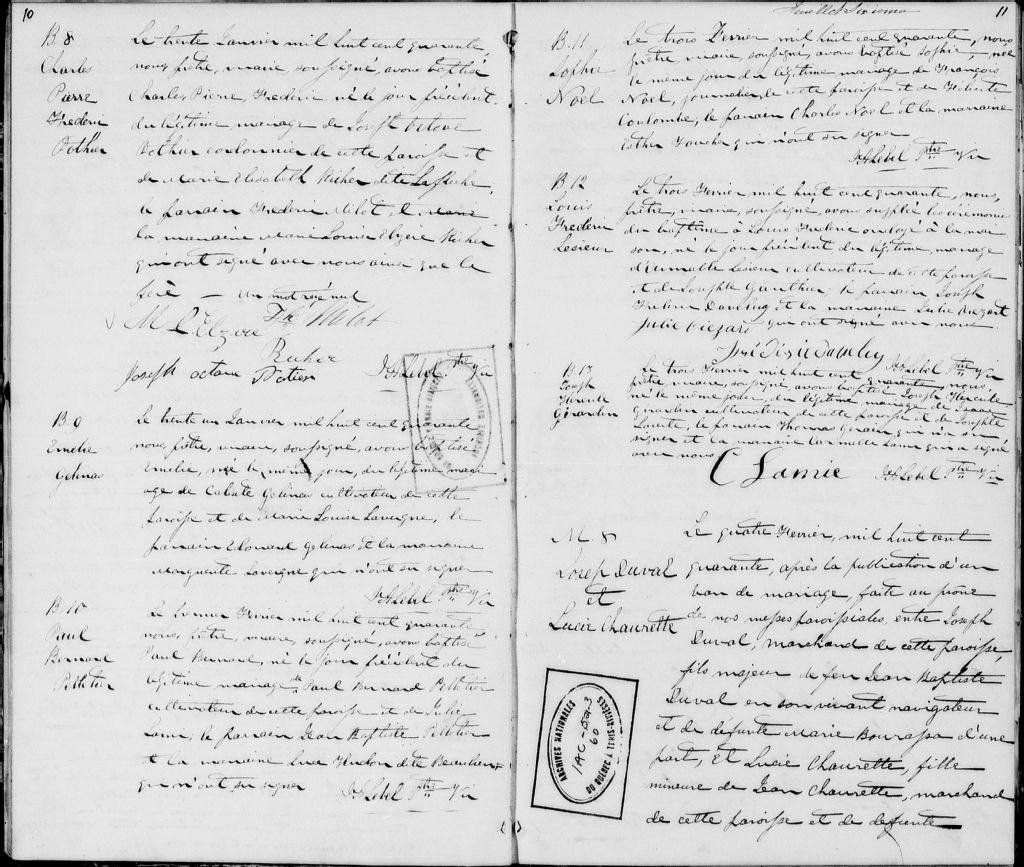 10
B. 8
Charles
Pierre
Frederic
Pothier
Le trente Janvier mil huit cent quarante,
nous, prêtre, vicaire, soussigné, avons baptisé
Charles, Pierre, Frederic, né le jour précédent
du légitime mariage de Joseph Octave
Pothier cordonnier de cette paroisse et
de Marie Elisabeth Richer dite Lafleche,
le parrain Frederic Milot,
la marraine Marie Louise Elzire Richer
qui ont signé avec nous ainsi que le
père — un mot rayé nul
M L Elzire
Richer
Joseph octave Potier
Ptre Vic
B. 9
Emelie
Gelinas
Le trente un Janvier mil huit cent quarante
nous, prêtre, vicaire, soussigné, avons baptisé
Emelie, née le même jour, du légitime mari
age de Calixte Gelinas cultivateur de cette
paroisse et de Marie Louise Lavergne, le
parrain Edouard Gelinas et la marraine
Marguerite Lavergne qui n'ont su signer
Ptre Vic
B. 10
Paul
Bernard
Pelletier
Le premier Fevrier mil huit cent quarante
nous, prêtre, vicaire, soussigné, avons baptisé
Paul Bernard, né le jour précédent du
légitime mariage de Paul Bernard Pelletier
cultivateur de cette paroisse et de Julie
Lamie, le parrain Jean Baptiste Pelletier
et la marraine Luce Hudon dite Beaulieu
qui n'ont su signer
Ptre Vic
Feuillet Sixieme
11
B. 11
Sophie
Noël
Le trois Fevrier mil huit cent quarante, nous,
prêtre, vicaire, soussigné, avons baptisé Sophie, née
le même jour du légitime mariage de François
Noël, journalier de cette paroisse et de
Coulombe, le parrain Charles Noël et la marraine
Esther qui n'ont su signer
Ptre Vic
B. 12
Louis
Frederic
Lesieur
Le trois Fevrier mil huit cent quarante, nous,
prêtre, vicaire, soussigné, avons suppléé les ceremonies
du baptême à Louis Frederic ondoyé à la mai
son, né le jour précédent du légitime mariage
d'Aimable Lesieur cultivateur de cette paroisse
et de Josephte Gauthier, le parrain Joseph
Frederic et la marraine Julie
Julie qui ont signé avec nous
Ptre Vic
B. 13
Joseph
Hercule
Girardin
Le trois Fevrier mil huit cent quarante, nous,
prêtre, vicaire, soussigné, avons baptisé Joseph Hercule
né le même jour, du légitime mariage de Isaac
Girardin cultivateur de cette paroisse et de Josephte
le parrain Thomas qui n'a su
signer et la marraine Lamie qui a signé
avec nous
C Lamie
Ptre Vic
M. 8
Joseph Duval
et
Lucie Chaurette
Le quatre Fevrier, mil huit cent
quarante, après la publication d'un
ban de mariage, faite au prone
de nos messes paroissiales, entre Joseph
Duval, marchand de cette paroisse,
fils majeur de feu Jean Baptiste
Duval en son vivant navigateur
et de defunte Marie Bourassa d'une
part, et Lucie Chaurette, fille
mineure de Jean Chaurette, marchand
de cette paroisse et de defunte
ARCHIVES NATIONALES
60
DU QUÉBEC À TROIS-RIVIÈRES